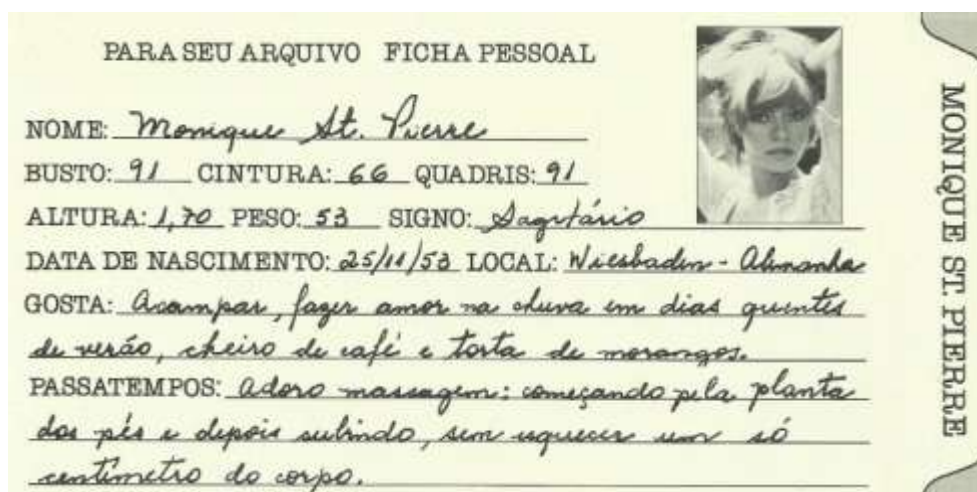 PARA SEU ARQUIVO FICHA PESSOAL
NOME: Monique St. Pierre
BUSTO: 91 CINTURA: 66 QUADRIS: 91
ALTURA: 1,70 PESO: 53 SIGNO: Sagitário
DATA DE NASCIMENTO: 25/11/53 LOCAL: Wiesbaden - Alemanha
GOSTA: Acampar, fazer amor na chuva em dias quentes
de verão, cheiro de café e torta de morangos.
PASSATEMPOS: Adoro massagem: começando pela planta
dos pés e depois subindo, sem esquecer um só
centímetro do corpo.
MONIQUE ST. PIERRE